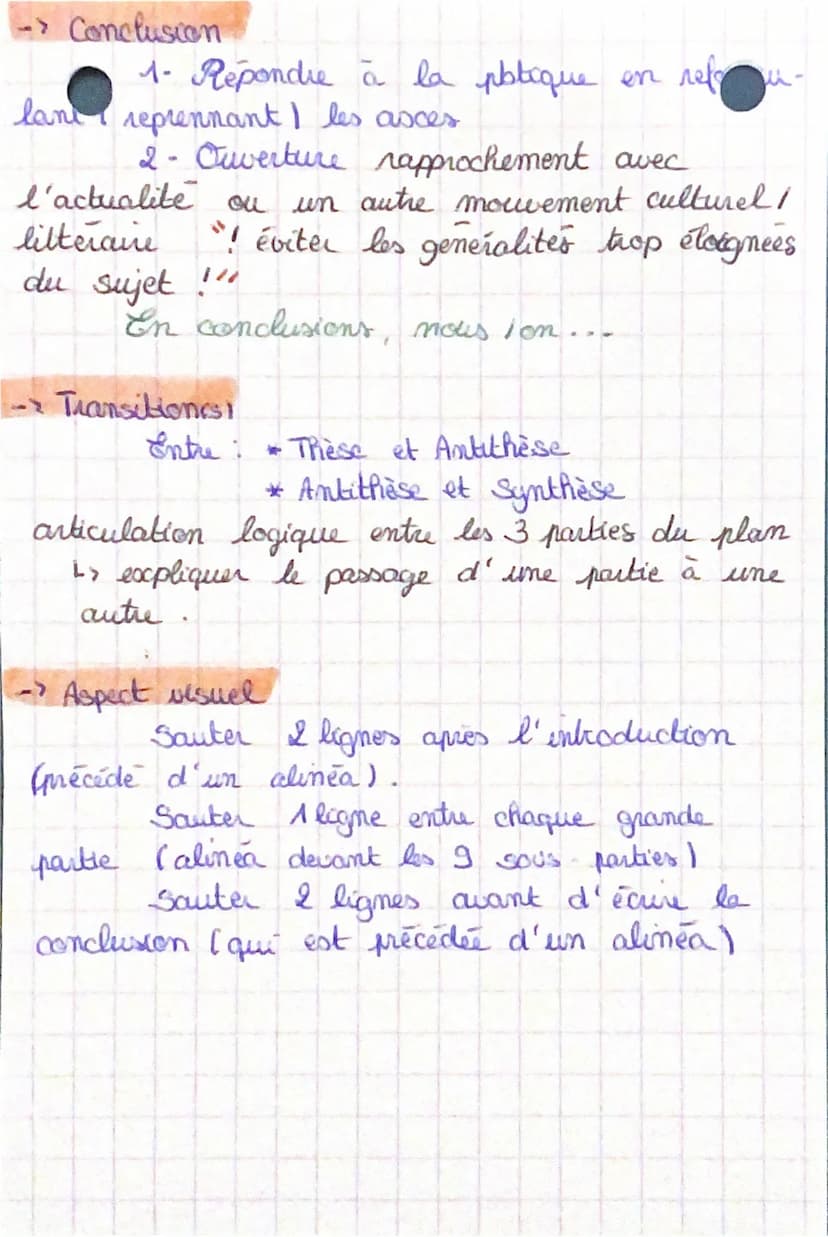 -> Conclusion
1- Répondre à la pbtique en refo u-
lant ( reprennant ) les axces
2 - Ouverture rapprochement avec
l'actualité ou un autre mouvement culturel /
littéraire "! éviter les généralités trop éloignées
du sujet !"
En conclusions, nous / on ...
-> Transition(s)
Entre : * Thèse et Antithèse
* Antithèse et Synthèse
articulation logique entre les 3 parties du plan
↳ expliquer le passage d'une partie à une
autre .
-> Aspect visuel
Sauter 2 lignes après l'introduction
(précédé d'un alinéa).
Sauter 1 ligne entre chaque grande
partie (alinéa devant les 9 sous-parties)
Sauter 2 lignes avant d'écrire la
conclusion (qui est précédée d'un alinéa)